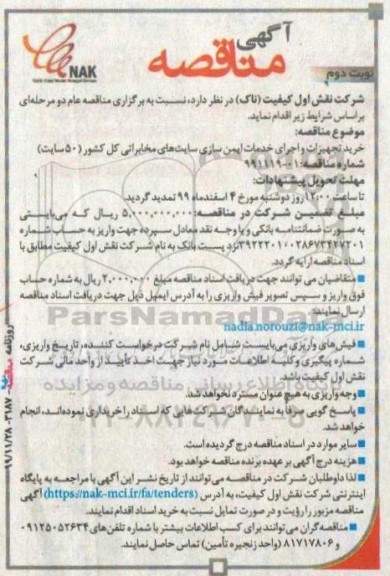 آگهی
مناقصه
NAK
نوبت دوم
شرکت نقش اول کیفیت (ناک) در نظر دارد، نسبت به برگزاری مناقصه عام دو مرحله‌ای
براساس شرایط زیر اقدام نماید.
موضوع مناقصه:
خرید تجهیزات و اجرای خدمات ایمن سازی سایت‌های مخابراتی کل کشور (۵۰ سایت)
شماره مناقصه: ۰۱-۹۹۱۱۱۹
مهلت تحویل پیشنهادات:
تا ساعت ۱۲:۰۰ روز دوشنبه مورخ ۴ اسفندماه ۹۹ تمدید گردید
مبلغ تضمین شرکت در مناقصه: ۵,۰۰۰,۰۰۰,۰۰۰ ریال که می‌بایستی
به صورت ضمانتنامه بانکی و یا وجه نقد معادل سپرده جهت واریز به حساب شماره
نزد پست بانک به نام شرکت نقش اول کیفیت مطابق با
اسناد مناقصه ارایه گردد.
■ متقاضیان می توانند جهت دریافت اسناد مناقصه مبلغ ۲,۰۰۰,۰۰۰ ریال به شماره حساب
فوق واریز و سپس تصویر فیش واریزی را به آدرس ایمیل ذیل جهت دریافت اسناد مناقصه
ارسال نمایند:
nadia.norouzi@nak-mci.ir
■ فیش‌های واریزی می‌بایست شامل نام شرکت درخواست کننده، تاریخ واریزی،
شماره پیگیری و کلیه اطلاعات مورد نیاز جهت اخذ تأیید از واحد مالی شرکت
نقش اول کیفیت باشد.
■ وجه واریزی به هیچ عنوان مسترد نخواهد شد.
■ پاسخ گویی صرفا به نمایندگان شرکت‌هایی که اسناد را خریداری نموده‌اند، انجام
خواهد شد.
■ سایر موارد در اسناد مناقصه درج گردیده است.
■ هزینه درج آگهی بر عهده برنده مناقصه خواهد بود.
■ لذا داوطلبان شرکت در مناقصه می‌توانند از تاریخ نشر این آگهی با مراجعه به پایگاه
اینترنتی شرکت نقش اول کیفیت، به آدرس (https://nak-mci.ir/fa/tenders) آگهی
مناقصه مزبور را رؤیت و در صورت تمایل نسبت به خرید اسناد اقدام نمایند.
■ مناقصه گران می‌توانند برای کسب اطلاعات بیشتر با شماره تلفن‌های ۰۹۱۲۵۰۵۲۶۳۴
و ۸۱۷۱۷۸۰۶ (واحد زنجیره تأمین) تماس حاصل نمایند.
ParsNamadData
پایگاه اطلاع رسانی مناقصه و مزایده
روزنامه
۹۹/۱۱/۲۸